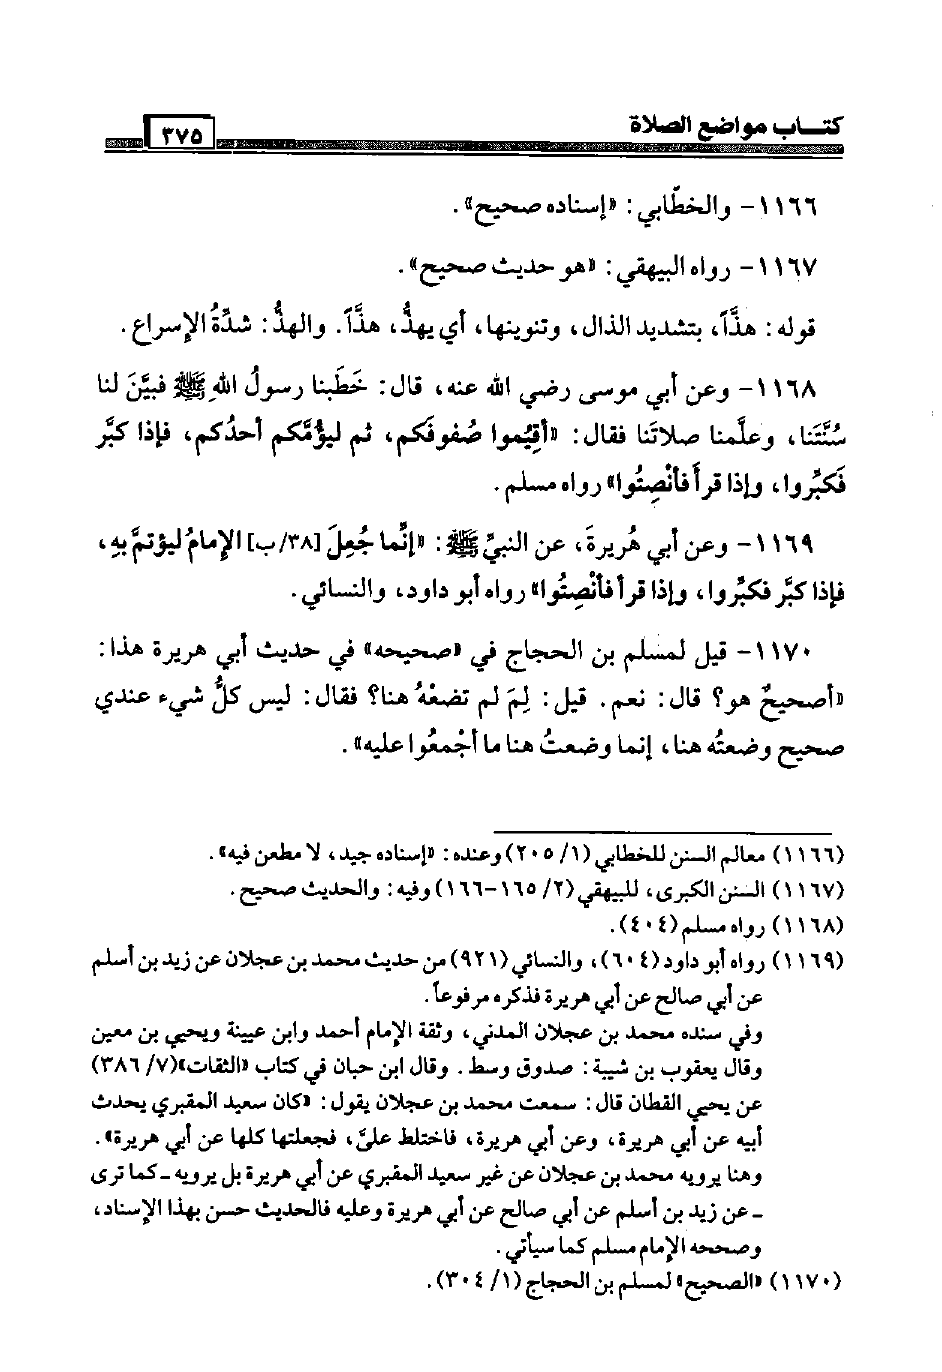 كتـــاب مواضع الصلاة
٣٧٥
١١٦٦- والخطّابي: «إسناده صحيح».
١١٦٧- رواه البيهقي: «هو حديث صحيح».
قوله: هذَّاً، بتشديد الذال، وتنوينها، أي يهذُّ، هذَّاً. والهذُّ: شدِّةُ الإسراع.
١١٦٨- وعن أبي موسى رضي الله عنه، قال: خَطَبنا رسولُ اللهِ ﷺ فبيَّنَ لنا
سُنَّتَنا، وعلَّمنا صلاتَنا فقال: «أقِيُموا صُفوفَكم، ثم ليؤُمَّكم أحدُكم، فإذا كبَّر
فَكبِّروا، وإذا قرأَ فأنْصِتُوا» رواه مسلم.
١١٦٩- وعن أبي هُريرةَ، عن النبيِّ ﷺ: «إنَّما جُعِلَ [٣٨/ب] الإمامُ ليؤتمَّ بهِ،
فإذا كبَّر فكبِّروا، وإذا قرأ فأنْصِتُوا» رواه أبو داود، والنسائي.
١١٧٠- قيل لمسْلم بن الحجاج في «صحيحه» في حديث أبي هريرة هذا:
«أصحيحٌ هو؟ قال: نعم. قيل: لِمَ لم تضعْهُ هنا؟ فقال: ليس كلُّ شيء عندي
صحيح وضعتُه هنا، إنما وضعتُ هنا ما أجْمعُوا عليه».
(١١٦٦) معالم السنن للخطابي (١/ ٢٠٥) وعنده: «إسناده جيد، لا مطعن فيه».
(١١٦٧) السنن الكبرى، للبيهقي (٢/ ١٦٥-١٦٦) وفيه: والحديث صحيح.
(١١٦٨) رواه مسلم (٤٠٤).
(١١٦٩) رواه أبو داود (٦٠٤)، والنسائي (٩٢١) من حديث محمد بن عجلان عن زيد بن أسلم
عن أبي صالح عن أبي هريرة فذكره مرفوعاً.
وفي سنده محمد بن عجلان المدني، وثقة الإمام أحمد وابن عيينة ويحيي بن معين
وقال يعقوب بن شيبة: صدوق وسط. وقال ابن حبان في كتاب «الثقات»(٧/ ٣٨٦)
عن يحيي القطان قال: سمعت محمد بن عجلان يقول: «كان سعيد المقبري يحدث
أبيه عن أبي هريرة، وعن أبي هريرة، فاختلط عليَّ، فجعلتها كلها عن أبي هريرة».
وهنا يرويه محمد بن عجلان عن غير سعيد المقبري عن أبي هريرة بل يرويه ـ كما ترى
ـ عن زيد بن أسلم عن أبي صالح عن أبي هريرة وعليه فالحديث حسن بهذا الإسناد،
وصححه الإمام مسلم كما سيأتي.
(١١٧٠) «الصحيح» لمسلم بن الحجاج (١/ ٣٠٤).